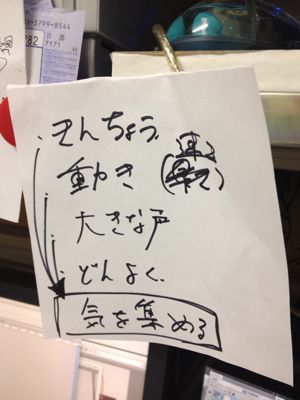 03-3799-854
7171
82
・きんちょう
動き
・大きな声
・どんよく
気を集める